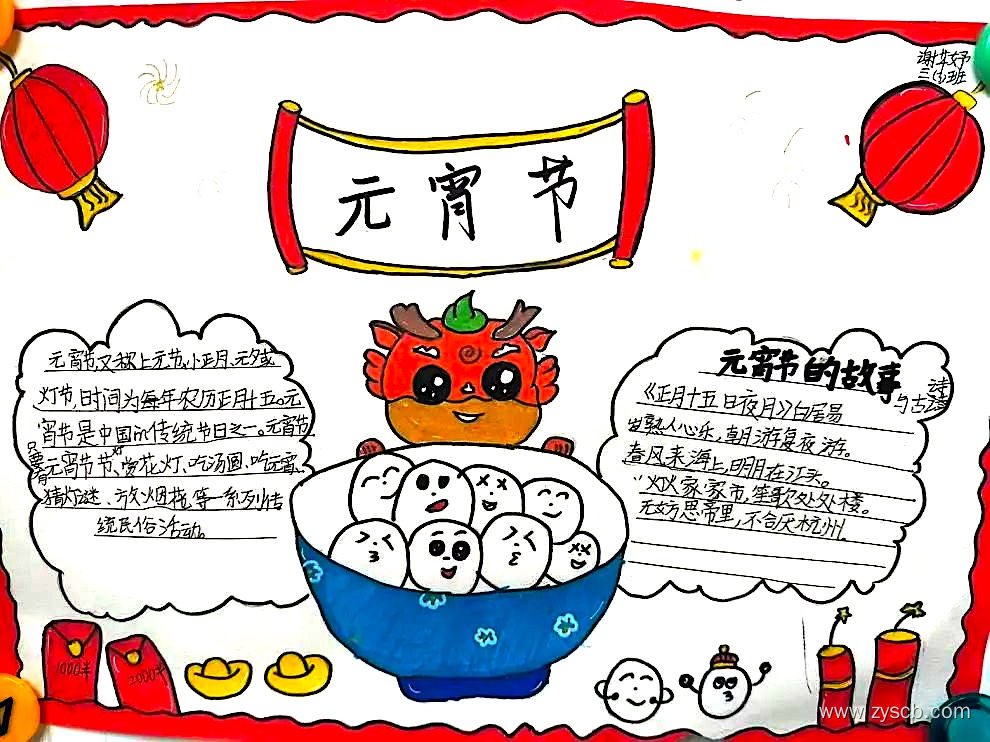 谢华妤
三(1)班
元宵节
元宵节,又称上元节,小正月、元夕或
灯节,时间为每年农历正月十五。元
宵节是中国的传统节日之一。元宵节
元宵节节 赏花灯、吃汤圆、吃元宵、
猜灯谜、放烟花等一系列传
统民俗活动。
元宵节的故事
诗
与古诗
《正月十五日夜月》白居易
岁熟人心乐,朝游复夜游。
春风来海上,明月在江头。
灯火家家市,笙歌处处楼。
无妨思帝里,不合厌杭州。
1000
2000
www.zyscb.com